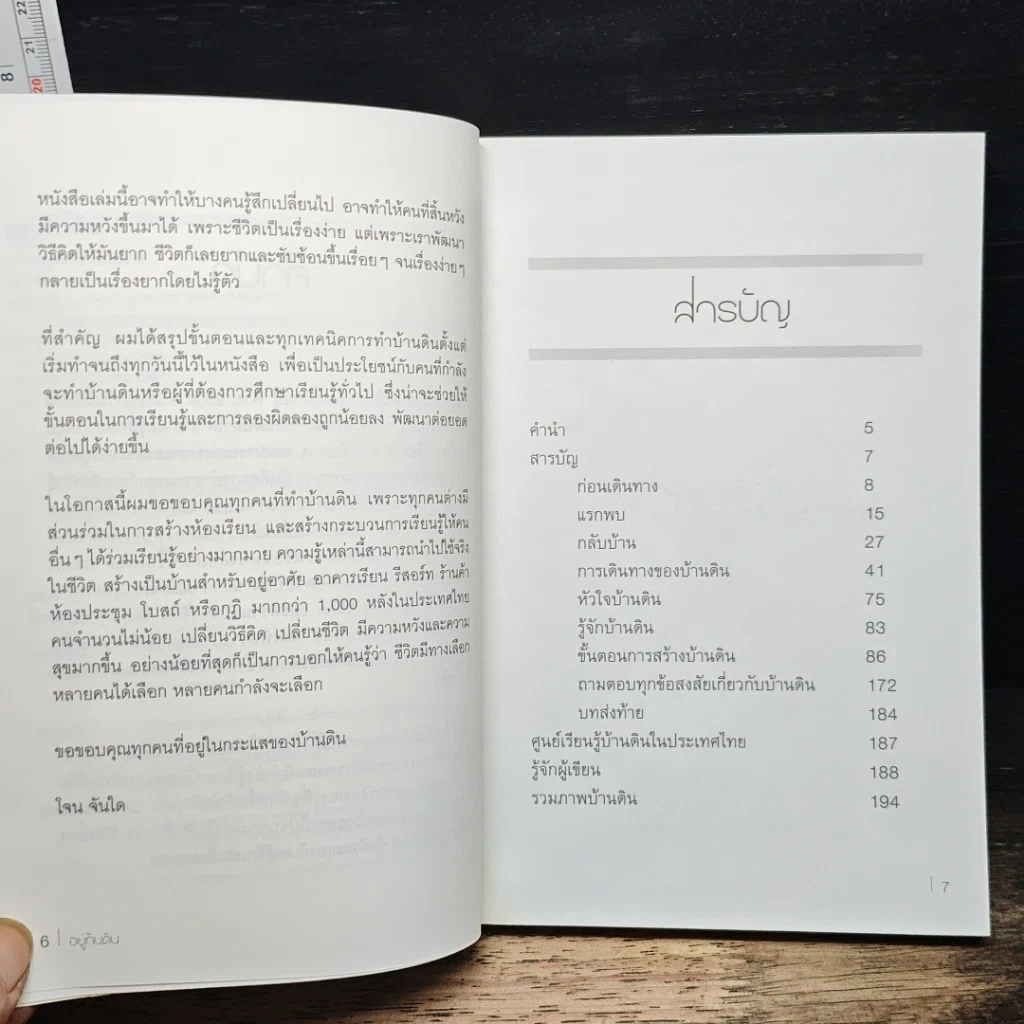 22
21
20
8
หนังสือเล่มนี้อาจทำให้บางคนรู้สึกเปลี่ยนไป อาจทำให้คนที่สิ้นหวัง
มีความหวังขึ้นมาได้ เพราะชีวิตเป็นเรื่องง่าย แต่เพราะเราพัฒนา
วิธีคิดให้มันยาก ชีวิตก็เลยยากและซับซ้อนขึ้นเรื่อยๆ จนเรื่องง่ายๆ
กลายเป็นเรื่องยากโดยไม่รู้ตัว
ที่สำคัญ ผมได้สรุปขั้นตอนและทุกเทคนิคการทำบ้านดินตั้งแต่
เริ่มทำจนถึงทุกวันนี้ไว้ในหนังสือ เพื่อเป็นประโยชน์กับคนที่กำลัง
จะทำบ้านดินหรือผู้ที่ต้องการศึกษาเรียนรู้ทั่วไป ซึ่งน่าจะช่วยให้
ขั้นตอนในการเรียนรู้และการลองผิดลองถูกน้อยลง พัฒนาต่อยอด
ต่อไปได้ง่ายขึ้น
ในโอกาสนี้ผมขอขอบคุณทุกคนที่ทำบ้านดิน เพราะทุกคนต่างมี
ส่วนร่วมในการสร้างห้องเรียน และสร้างกระบวนการเรียนรู้ให้คน
อื่นๆ ได้ร่วมเรียนรู้อย่างมากมาย ความรู้เหล่านี้สามารถนำไปใช้จริง
ในชีวิต สร้างเป็นบ้านสำหรับอยู่อาศัย อาคารเรียน รีสอร์ท ร้านค้า
ห้องประชุม โบสถ์ หรือกุฏิ มากกว่า 1,000 หลังในประเทศไทย
คนจำนวนไม่น้อย เปลี่ยนวิธีคิด เปลี่ยนชีวิต มีความหวังและความ
สุขมากขึ้น อย่างน้อยที่สุดก็เป็นการบอกให้คนรู้ว่า ชีวิตมีทางเลือก
หลายคนได้เลือก หลายคนกำลังจะเลือก
ขอขอบคุณทุกคนที่อยู่ในกระแสของบ้านดิน
โจน จันใด
6 | อยู่กับดิน
สารบัญ
คำนำ 5
สารบัญ 7
ก่อนเดินทาง 8
แรกพบ 15
กลับบ้าน 27
การเดินทางของบ้านดิน 41
หัวใจบ้านดิน 75
รู้จักบ้านดิน 83
ขั้นตอนการสร้างบ้านดิน 86
ถามตอบทุกข้อสงสัยเกี่ยวกับบ้านดิน 172
บทส่งท้าย 184
ศูนย์เรียนรู้บ้านดินในประเทศไทย 187
รู้จักผู้เขียน 188
รวมภาพบ้านดิน 194
| 7